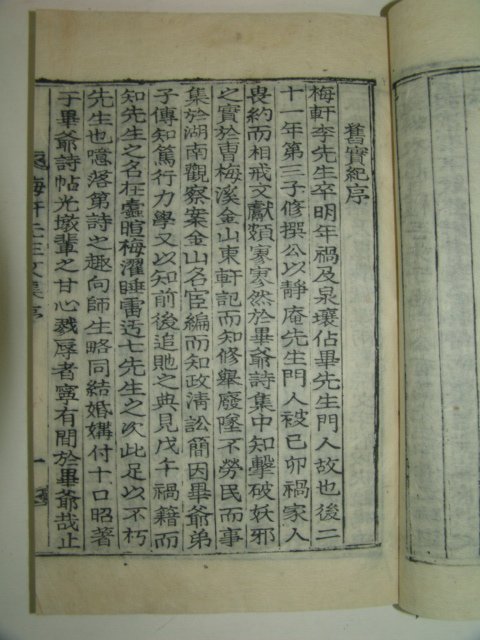 舊實紀序
梅軒李先生卒明年禍及泉壤佔畢先生門人故也後二
十一年第三子修撰公以靜庵先生門人被己卯禍家人
畏約而相戒文獻類寥寥然於畢爺詩集中知擊破妖邪
之實於曺梅溪金山東軒記而知修擧廢墜不勞民而事
集於湖南觀察案金山名宦編而知政淸訟簡因畢爺弟
子傳知篤行力學又以知前後追貤之典見戊午禍籍而
知先生之名在蠹暄梅濯睡雷迃七先生之次此足以不朽
先生也噫落第詩之趣向師生略同結婚媾付十口昭著
于畢爺詩帖光墩輩之甘心戮辱者寗有間於畢爺哉止
梅軒先生文集序 一